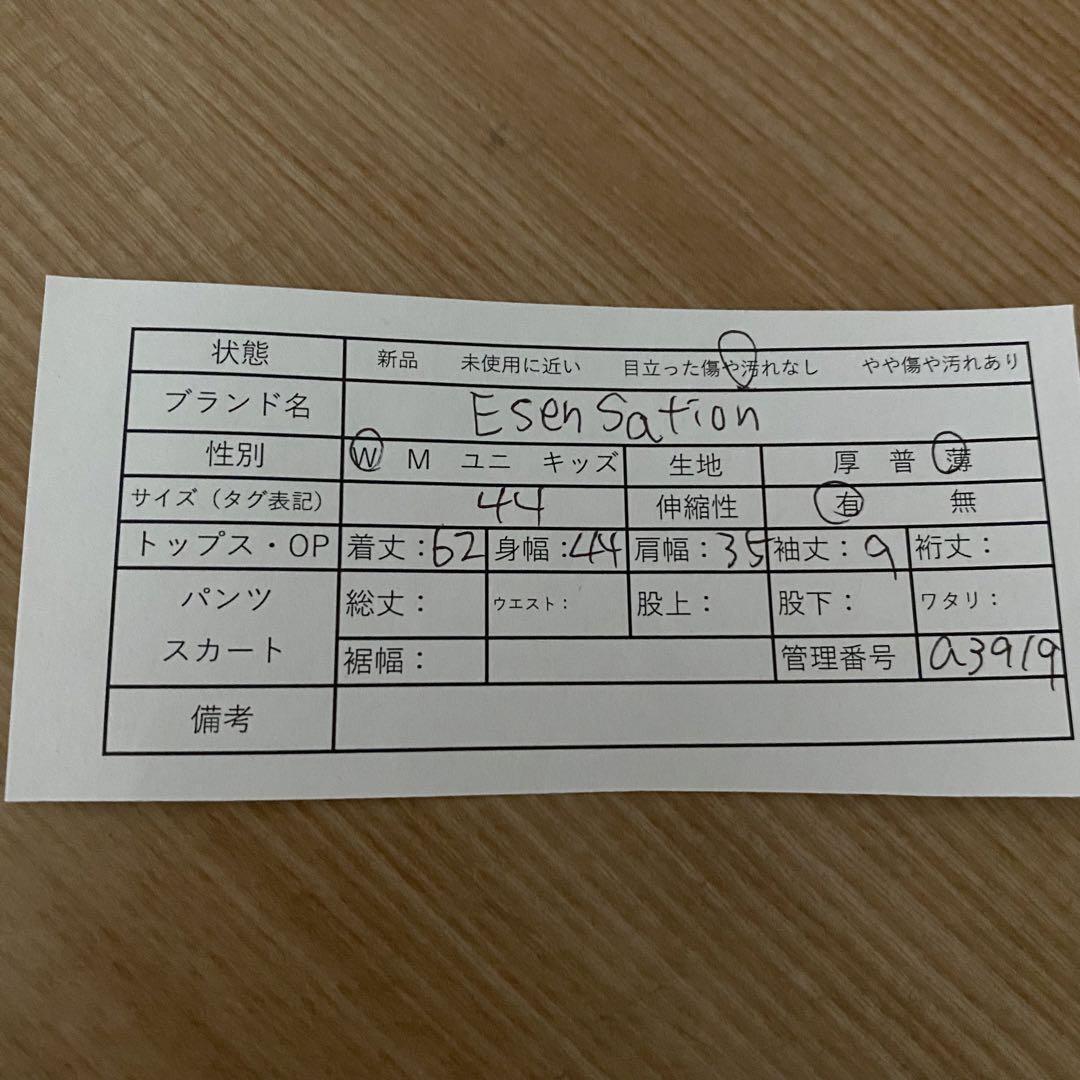 状態 新品 未使用に近い 目立った傷や汚れなし やや傷や汚れあり
ブランド名 Esen Sation
性別 W M ユニ キッズ 生地 厚 普 薄
サイズ（タグ表記） 44 伸縮性 有 無
トップス・OP 着丈：62 身幅：44 肩幅：35 袖丈：9 裄丈：
パンツ 総丈： ウエスト： 股上： 股下： ワタリ：
スカート 裾幅： 管理番号 a3919
備考